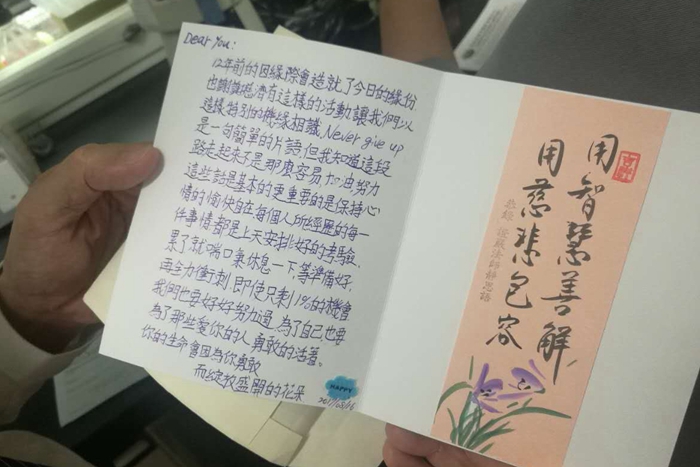 Dear You:
12年前的因緣際會造就了今日的緣份
也謝謝慈濟有這樣的活動讓我們以
這樣特別的機緣相識, Never give up
是一句簡單的片語,但我知道這段
路走起來不是那麼容易,加油努力
這些話是基本的更重要的是保持心
情的愉快自在,每個人所經歷的每一
件事情都是上天安排好的考驗,
累了就喘口氣休息一下,等準備好,
再全力衝刺,即使只剩1%的機會
我們也要好好努力過,為了自己也要
為了那些愛你的人勇敢的活著。
你的生命會因為你勇敢
而綻放盛開的花朵
HAPPY
用智慧善解
用慈悲包容
恭錄 證嚴法師靜思語